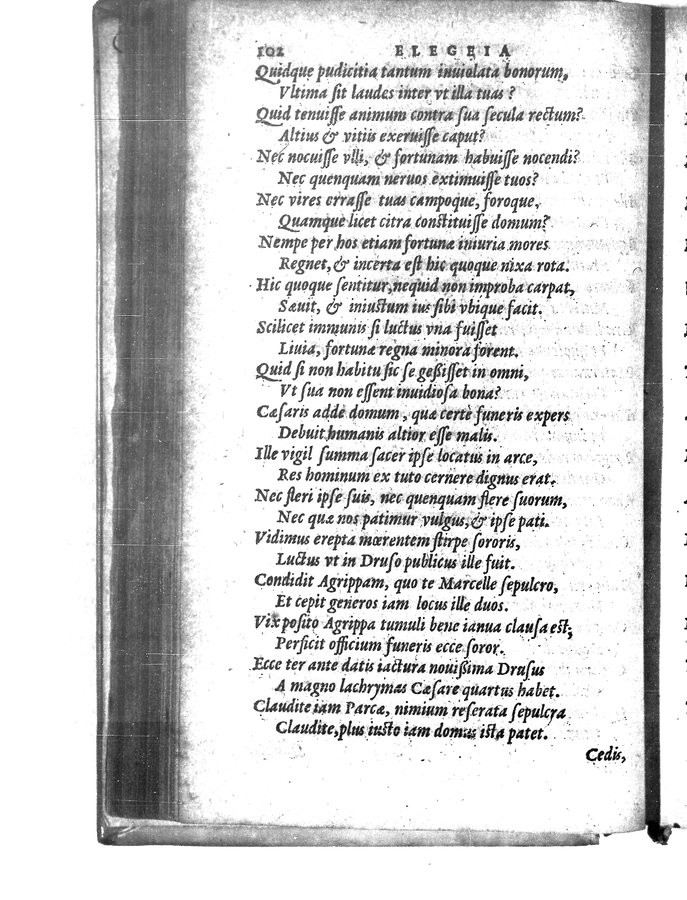 102 ELEGEIA
Quidque pudicitia tantum inuiolata bonorum,
Vltima sit laudes inter vt illa tuas?
Quid tenuisse animum contra sua secula rectum?
Altius & vitiis exeruisse caput?
Nec nocuisse vlli, & fortunam habuisse nocendi?
Nec quenquam neruos extimuisse tuos?
Nec vires errasse tuas campoque, foroque,
Quamque licet citra constituisse domum?
Nempe per hos etiam fortunæ iniuria mores
Regnet, & incerta est hic quoque nixa rota.
Hic quoque sentitur, nequid non improba carpat,
Sæuit, & iniustum ius sibi vbique facit.
Scilicet immunis si luctus vna fuisset
Liuia, fortunæ regna minora forent.
Quid si non habitu sic se gessisset in omni,
Vt sua non essent inuidiosa bona?
Cæsaris adde domum, quæ certè funeris expers
Debuit humanis altior esse malis.
Ille vigil summa sacer ipse locatus in arce,
Res hominum ex tuto cernere dignus erat.
Nec fleri ipse suis, nec quenquam flere suorum,
Nec quæ nos patimur vulgus, & ipse pati.
Vidimus erepta mœrentem stirpe sororis,
Luctus vt in Druso publicus ille fuit.
Condidit Agrippam, quo te Marcelle sepulcro,
Et cepit generos iam locus ille duos.
Vix posito Agrippa tumuli bene ianua clausa est;
Perficit officium funeris ecce soror.
Ecce ter ante datis iactura nouissima Drusus
A magno lachrymas Cæsare quartus habet.
Claudite iam Parcæ, nimium reserata sepulcra
Claudite, plus iusto iam domus ista patet.
Cedis,